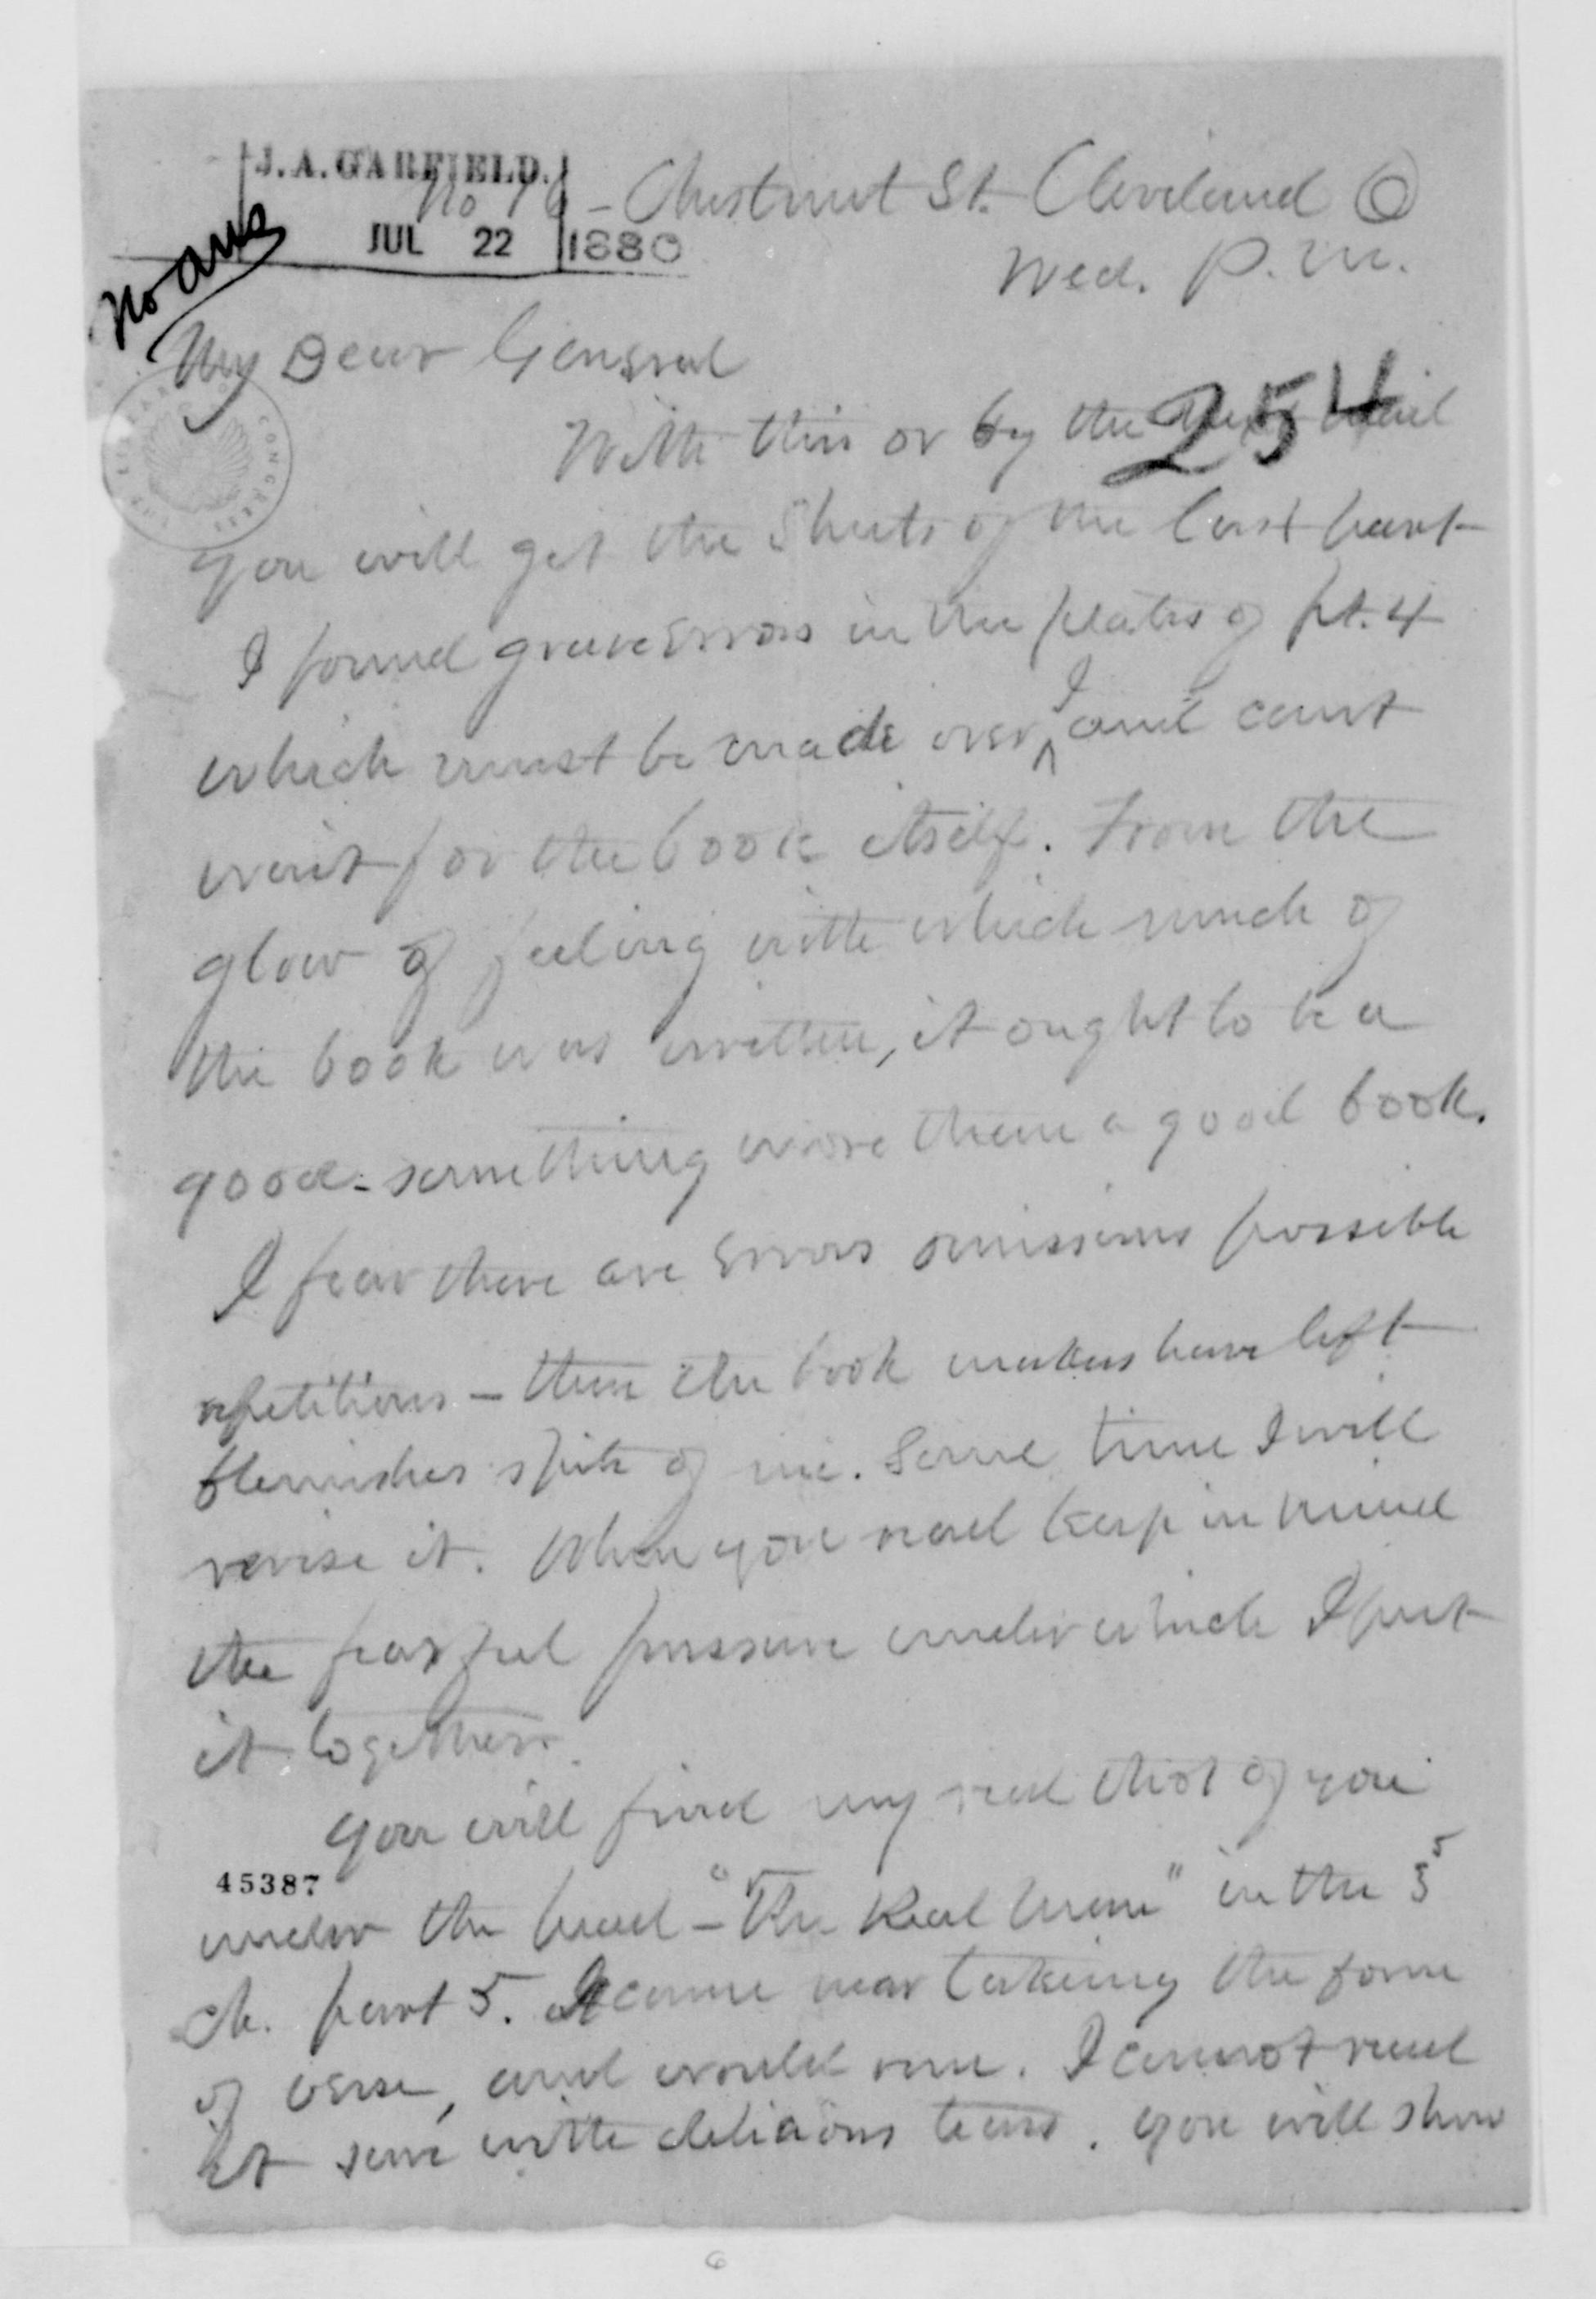 J. A. GARFIELD.
JUL 22 1880
No ans
No 76 - Chestnut St. Cleveland O
Wed. P. M.
My Dear General
254
With this or by the next mail
you will get the Sheets of the last part
I found grave errors in the plates of pt. 4
which must be made over, I and cant
wait for the book itself. From the
glow of feeling with which much of
the book was written, it ought to be a
good - something more than a good book.
I fear there are errors omissions possible
repetitions - then the book makers have left
blemishes spite of me. Some time I will
revise it. When you read keep in mind
the fearful pressure under which I put
it together.
You will find my real that of you
45387
under the head - "The Real Man" in the 5
ch. part 5. It came near taking the form
of verse, and would run. I cannot read
it save with delicious tears. You will show
6
THE LIBRARY OF CONGRESS